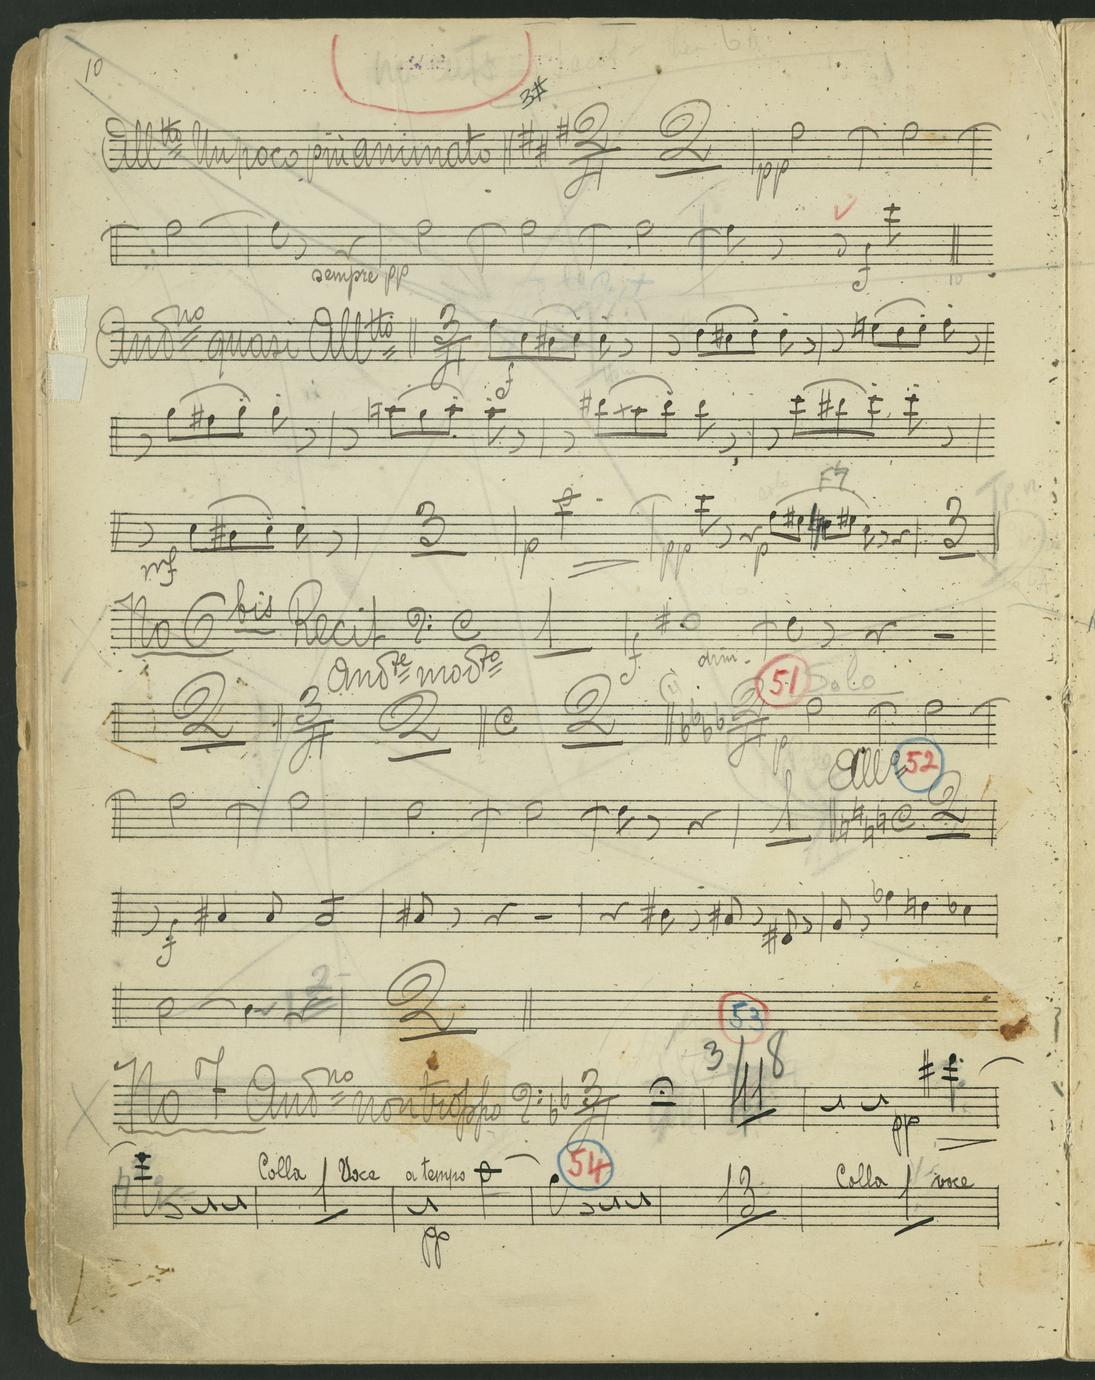 10
3#
All.tto Un poco più animato 2/4 2 pp
sempre pp f
10
And.no quasi All.tto 3/4 f
F#
mf 3 p pp p 3
No 6 bis Recit C 1 f dim.
And.te mod.to
2 3/4 2 C 2 2/4 p 51 Solo
All.o 52
1 C 2
f
2 2
53
3 8
No 7 And.no non troppo 3/4 11 pp
Colla 1 Voce a tempo 54 13 Colla 1 voce
pp